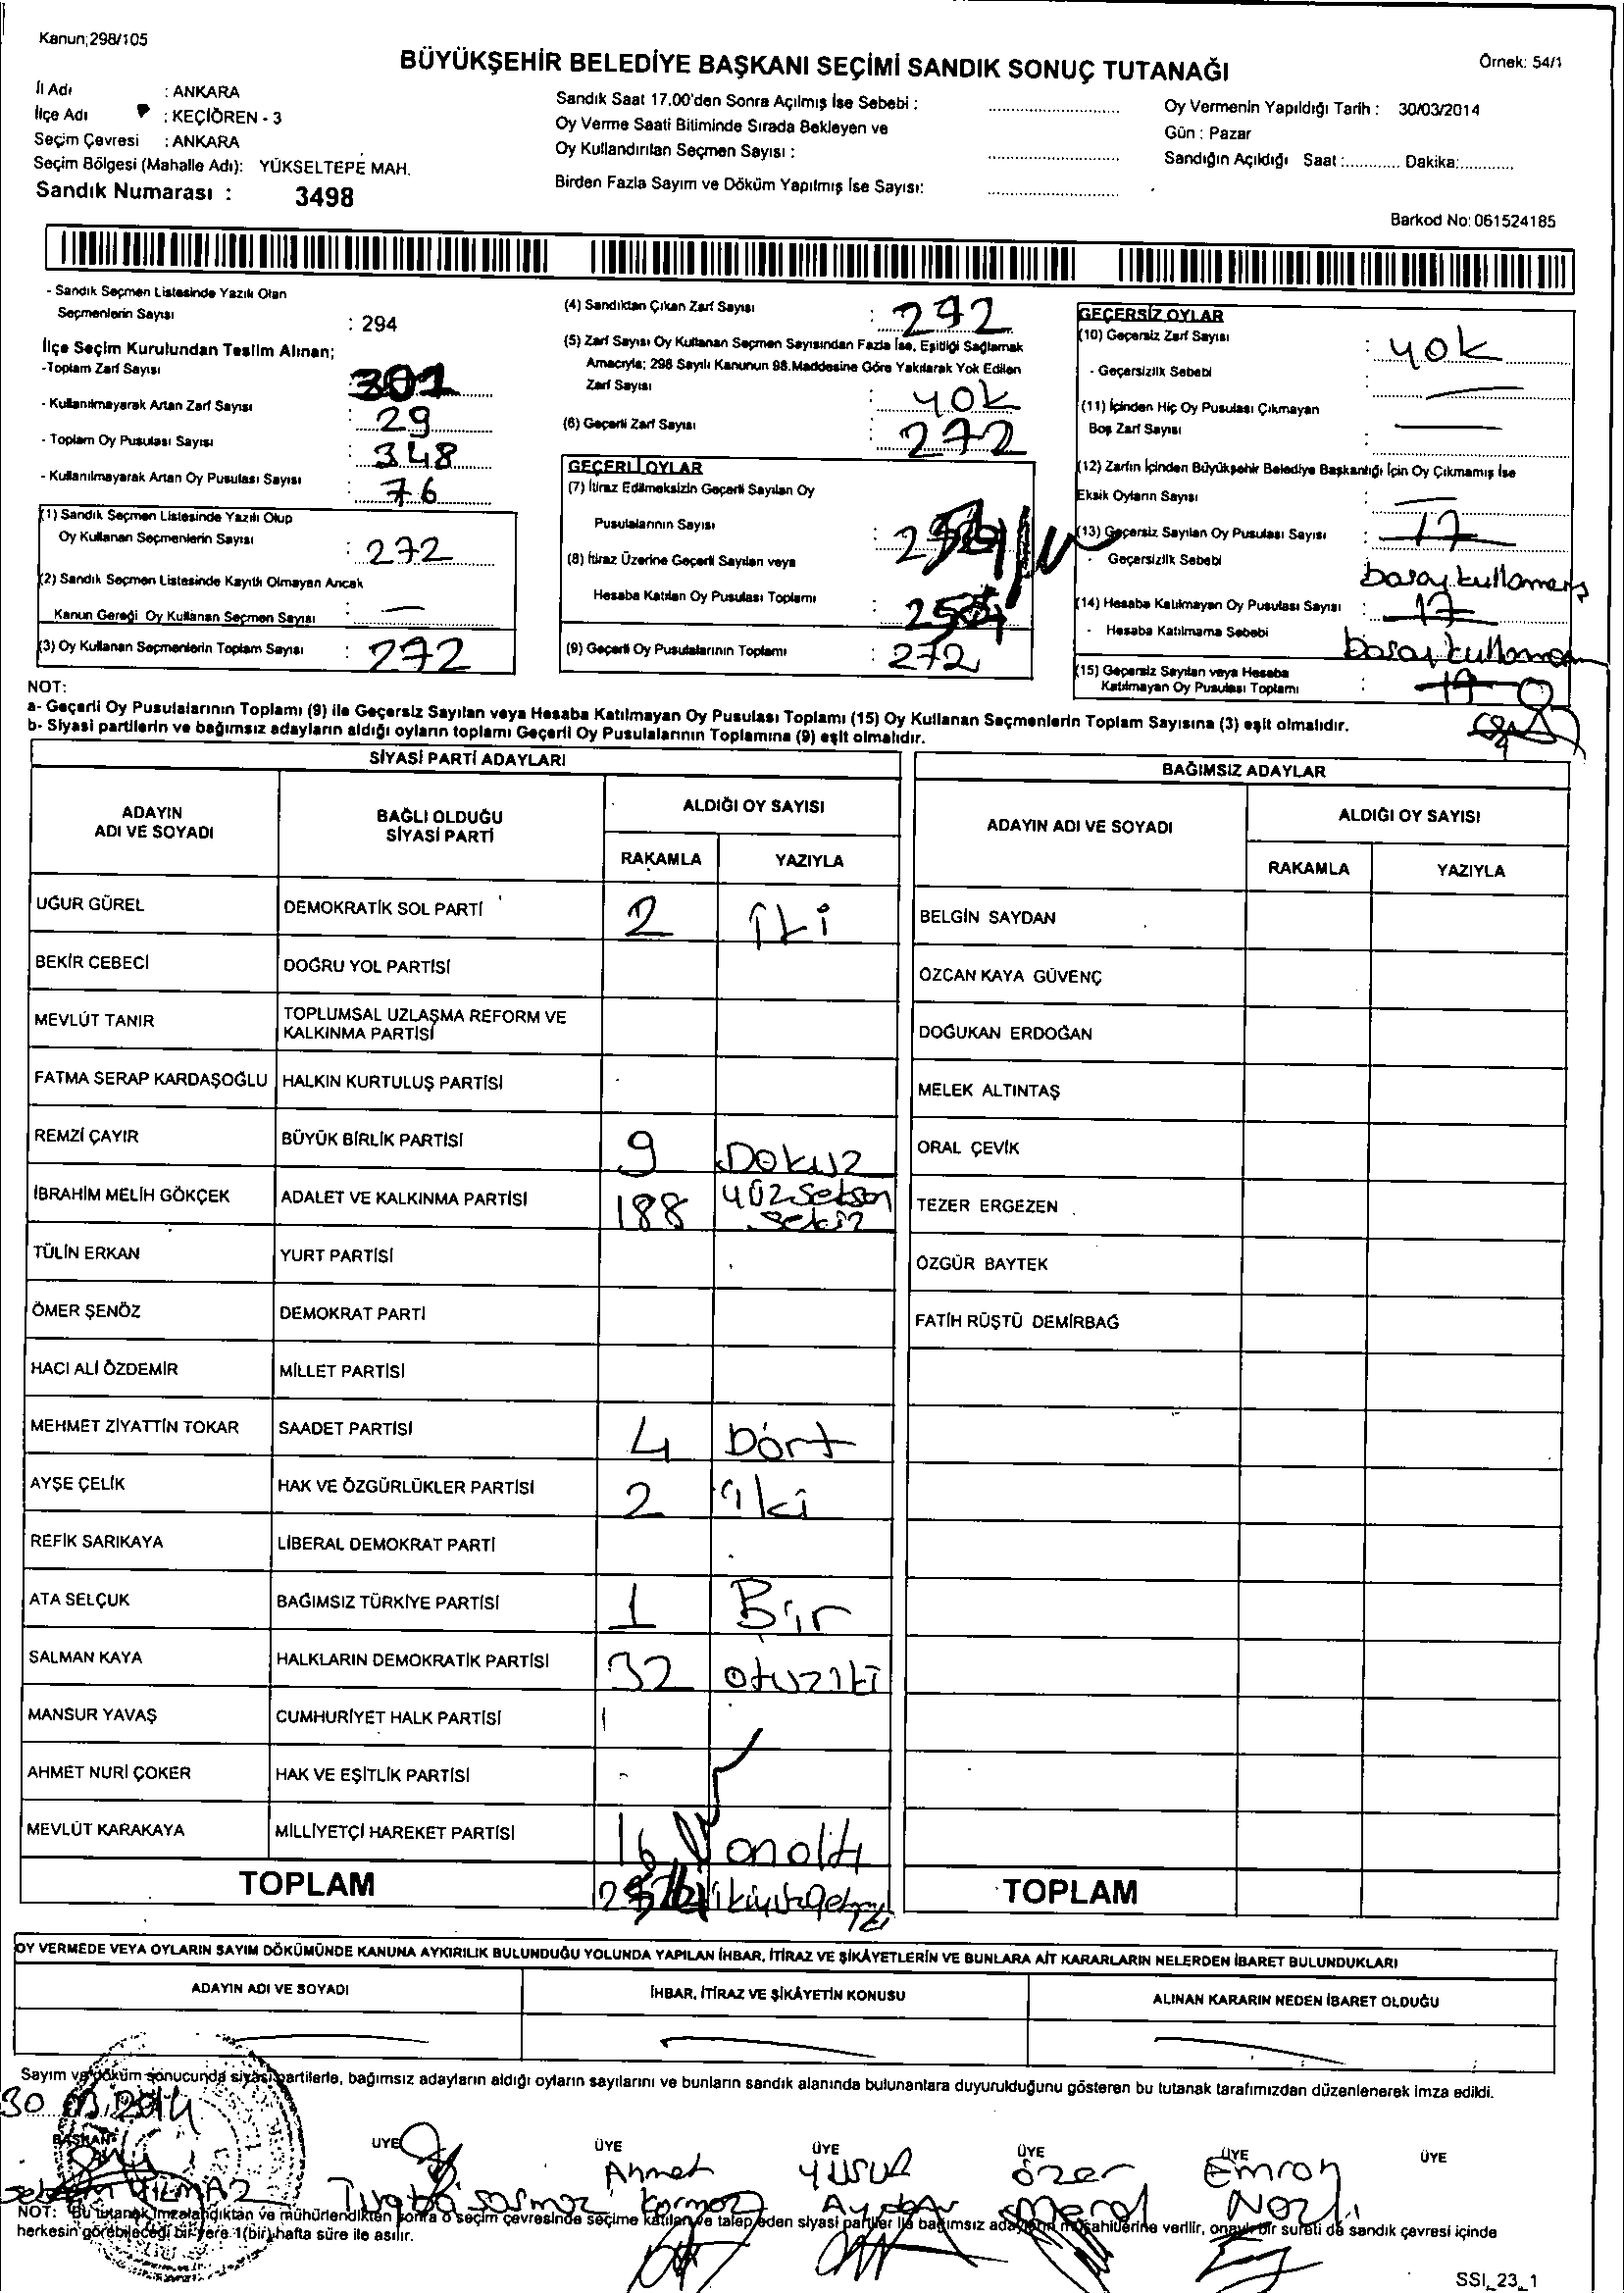 Kanun;298/105
BÜYÜKŞEHİR BELEDİYE BAŞKANI SEÇİMİ SANDIK SONUÇ TUTANAĞI
Örnek: 54/1
İl Adı : ANKARA
İlçe Adı : KEÇİÖREN - 3
Seçim Çevresi : ANKARA
Seçim Bölgesi (Mahalle Adı): YÜKSELTEPE MAH.
Sandık Numarası : 3498
Sandık Saat 17.00'den Sonra Açılmış İse Sebebi :
Oy Verme Saati Bitiminde Sırada Bekleyen ve
Oy Kullandırılan Seçmen Sayısı :
Birden Fazla Sayım ve Döküm Yapılmış İse Sayısı:
Oy Vermenin Yapıldığı Tarih : 30/03/2014
Gün : Pazar
Sandığın Açıldığı Saat :............ Dakika:............
Barkod No: 061524185
- Sandık Seçmen Listesinde Yazılı Olan
Seçmenlerin Sayısı : 294
İlçe Seçim Kurulundan Teslim Alınan;
-Toplam Zarf Sayısı : 301
- Kullanılmayarak Artan Zarf Sayısı : 29
- Toplam Oy Pusulası Sayısı : 348
- Kullanılmayarak Artan Oy Pusulası Sayısı : 76
(1) Sandık Seçmen Listesinde Yazılı Olup
Oy Kullanan Seçmenlerin Sayısı : 272
(2) Sandık Seçmen Listesinde Kayıtlı Olmayan Ancak
Kanun Gereği Oy Kullanan Seçmen Sayısı : —
(3) Oy Kullanan Seçmenlerin Toplam Sayısı : 272
(4) Sandıktan Çıkan Zarf Sayısı : 272
(5) Zarf Sayısı Oy Kullanan Seçmen Sayısından Fazla İse, Eşitliği Sağlamak
Amacıyla; 298 Sayılı Kanunun 98.Maddesine Göre Yakılarak Yok Edilen
Zarf Sayısı : yok
(6) Geçerli Zarf Sayısı : 272
GEÇERLİ OYLAR
(7) İtiraz Edilmeksizin Geçerli Sayılan Oy
Pusulalarının Sayısı :
(8) İtiraz Üzerine Geçerli Sayılan veya
Hesaba Katılan Oy Pusulası Toplamı :
(9) Geçerli Oy Pusulalarının Toplamı : 272
GEÇERSİZ OYLAR
(10) Geçersiz Zarf Sayısı : yok
- Geçersizlik Sebebi —
(11) İçinden Hiç Oy Pusulası Çıkmayan
Boş Zarf Sayısı : —
(12) Zarfın İçinden Büyükşehir Belediye Başkanlığı İçin Oy Çıkmamış İse
Eksik Oyların Sayısı : —
(13) Geçersiz Sayılan Oy Pusulası Sayısı : 17
- Geçersizlik Sebebi
(14) Hesaba Katılmayan Oy Pusulası Sayısı : 17
- Hesaba Katılmama Sebebi
(15) Geçersiz Sayılan veya Hesaba
Katılmayan Oy Pusulası Toplamı :
NOT:
a- Geçerli Oy Pusulalarının Toplamı (9) ile Geçersiz Sayılan veya Hesaba Katılmayan Oy Pusulası Toplamı (15) Oy Kullanan Seçmenlerin Toplam Sayısına (3) eşit olmalıdır.
b- Siyasi partilerin ve bağımsız adayların aldığı oyların toplamı Geçerli Oy Pusulalarının Toplamına (9) eşit olmalıdır.
SİYASİ PARTİ ADAYLARI
ADAYIN ADI VE SOYADI BAĞLI OLDUĞU SİYASİ PARTİ ALDIĞI OY SAYISI
RAKAMLA YAZIYLA
UĞUR GÜREL DEMOKRATİK SOL PARTİ 2 iki
BEKİR CEBECİ DOĞRU YOL PARTİSİ
MEVLÜT TANIR TOPLUMSAL UZLAŞMA REFORM VE KALKINMA PARTİSİ
FATMA SERAP KARDAŞOĞLU HALKIN KURTULUŞ PARTİSİ
REMZİ ÇAYIR BÜYÜK BİRLİK PARTİSİ 9 Dokuz
İBRAHİM MELİH GÖKÇEK ADALET VE KALKINMA PARTİSİ 188 yüzseksen sekiz
TÜLİN ERKAN YURT PARTİSİ
ÖMER ŞENÖZ DEMOKRAT PARTİ
HACI ALİ ÖZDEMİR MİLLET PARTİSİ
MEHMET ZİYATTİN TOKAR SAADET PARTİSİ 4 Dört
AYŞE ÇELİK HAK VE ÖZGÜRLÜKLER PARTİSİ 2 iki
REFİK SARIKAYA LİBERAL DEMOKRAT PARTİ
ATA SELÇUK BAĞIMSIZ TÜRKİYE PARTİSİ 1 Bir
SALMAN KAYA HALKLARIN DEMOKRATİK PARTİSİ 32 otuziki
MANSUR YAVAŞ CUMHURİYET HALK PARTİSİ
AHMET NURİ ÇOKER HAK VE EŞİTLİK PARTİSİ
MEVLÜT KARAKAYA MİLLİYETÇİ HAREKET PARTİSİ 16 onaltı
TOPLAM
BAĞIMSIZ ADAYLAR
ADAYIN ADI VE SOYADI ALDIĞI OY SAYISI
RAKAMLA YAZIYLA
BELGİN SAYDAN
ÖZCAN KAYA GÜVENÇ
DOĞUKAN ERDOĞAN
MELEK ALTINTAŞ
ORAL ÇEVİK
TEZER ERGEZEN
ÖZGÜR BAYTEK
FATİH RÜŞTÜ DEMİRBAĞ
TOPLAM
OY VERMEDE VEYA OYLARIN SAYIM DÖKÜMÜNDE KANUNA AYKIRILIK BULUNDUĞU YOLUNDA YAPILAN İHBAR, İTİRAZ VE ŞİKÂYETLERİN VE BUNLARA AİT KARARLARIN NELERDEN İBARET BULUNDUKLARI
ADAYIN ADI VE SOYADI İHBAR, İTİRAZ VE ŞİKÂYETİN KONUSU ALINAN KARARIN NEDEN İBARET OLDUĞU
Sayım ve döküm sonucunda siyasi partilerle, bağımsız adayların aldığı oyların sayılarını ve bunların sandık alanında bulunanlara duyurulduğunu gösteren bu tutanak tarafımızdan düzenlenerek imza edildi.
30 03.2014
BAŞKAN ÜYE ÜYE ÜYE ÜYE ÜYE ÜYE
Ahmet Yusuf Özer Emrah
YILMAZ Kormaz Meral Nazlı
NOT: Bu tutanak imzalandıktan ve mühürlendikten sonra o seçim çevresinde seçime katılan ve talep eden siyasi partiler ile bağımsız adayların müşahitlerine verilir, onaylı bir sureti de sandık çevresi içinde
herkesin görebileceği bir yere 1(bir) hafta süre ile asılır.
SSI_23_1